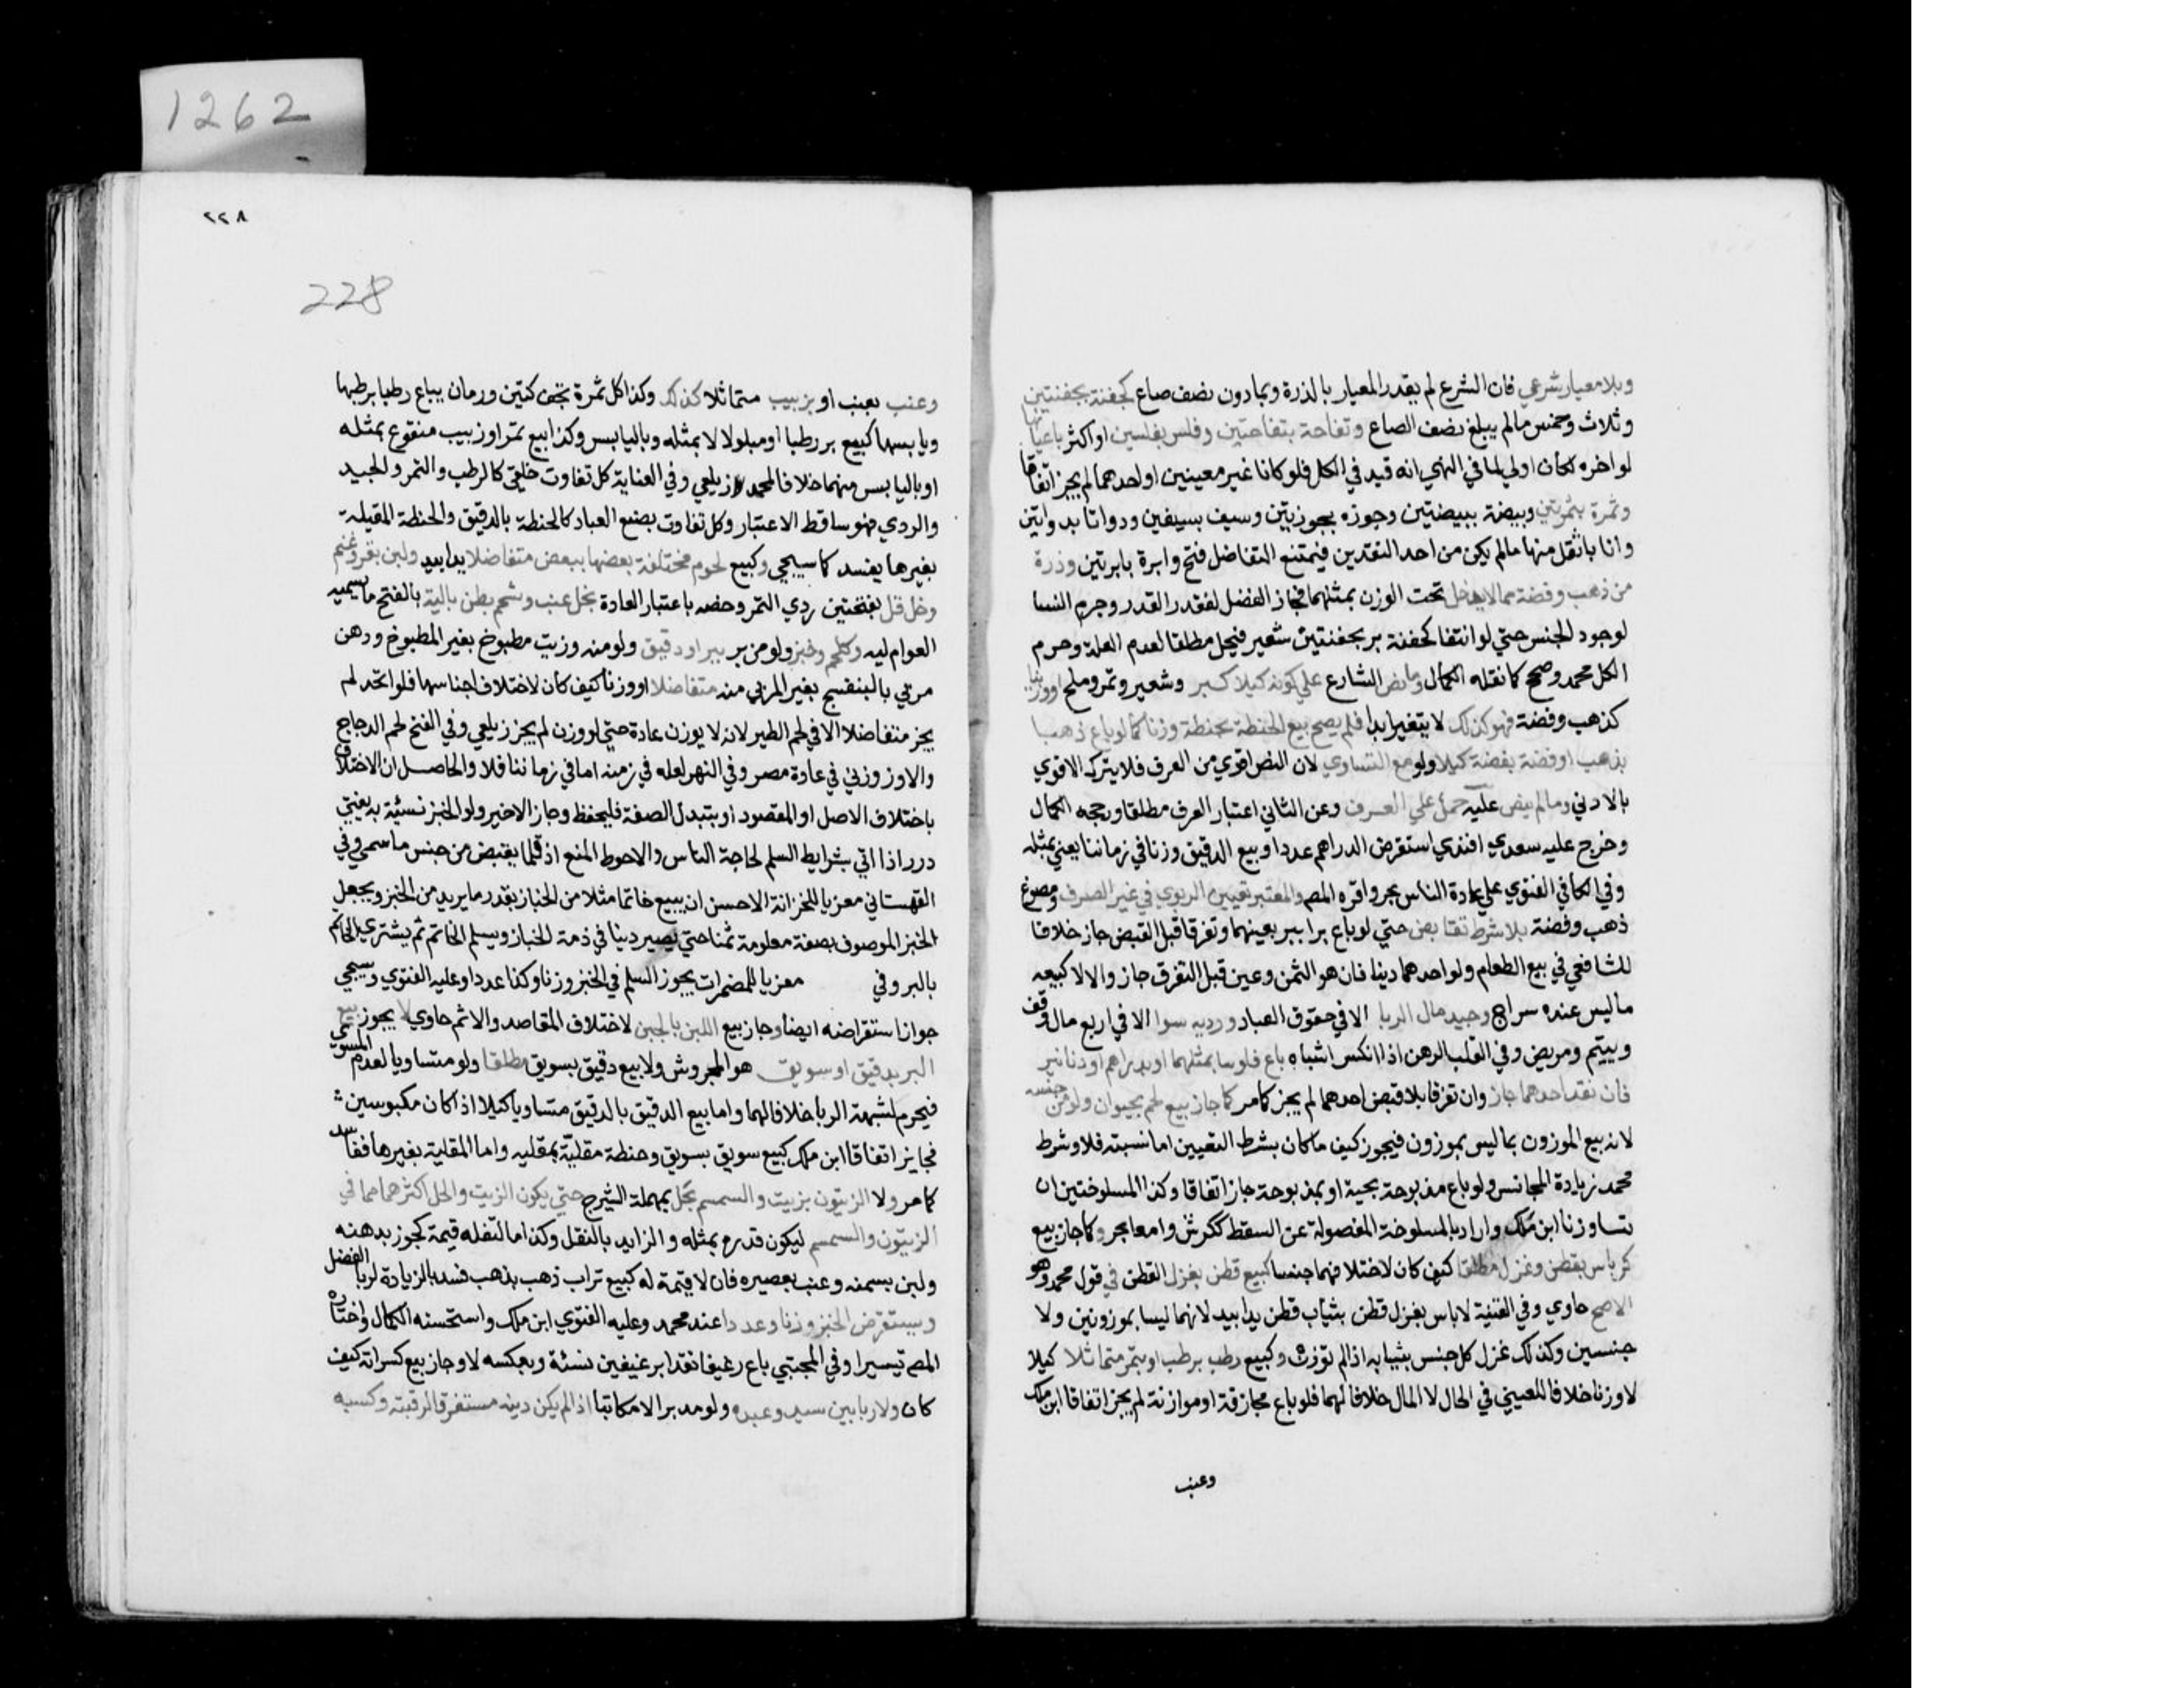 وبلا معيار شرعي فان الشرع لم يقدر المعيار بالذرة وبما دون نصف صاع كحفنة بحفنتين
وثلاث وخمس مالم يبلغ نصف الصاع وتفاحة بتفاحتين وفلس بفلسين او اكثر باعيانها
لو اخره لكان اولي لما في النهر انه قيد في الكل فلو كانا غير معينين او احدهما لم يجز اتفاقا
وتمرة بتمرتين وبيضة ببيضتين وجوزه بجوزتين وسيف بسيفين ودواتا بدواتين
وانا باثقل منها مالم يكن من احد النقدين فيمتنع التفاضل فتح وابرة بابرتين وذرة
من ذهب وفضة مما لا يدخل تحت الوزن بمثليهما فجاز الفضل لفقد القدر وحرم النسا
لوجود الجنس حتي لو انتفا كحفنة بر بحفنتين شعير فيحل مطلقا لعدم العلة وحرم
الكل محمد وصحح كما نقله الكمال وما نص الشارع علي كونه كيلا كبر وشعير وتمر وملح او وزنيا
كذهب وفضة فهو كذلك لا يتغير ابدا فلم يصح بيع الحنطة بحنطة وزنا كما لو باع ذهبا
بذهب او فضة بفضة كيلا ولو مع التساوي لان النص اقوي من العرف فلا يترك الاقوي
بالادني ومالم ينص عليه حمل علي العرف وعن الثاني اعتبار العرف مطلقا ورجحه الكمال
وخرج عليه سعدي افندي استقرض الدراهم عددا وبيع الدقيق وزنا في زماننا يعني بمثله
وفي الكافي الفتوي علي عادة الناس بحر واقره المص والمعتبر تعيين الربوي في غير الصرف ومصوغ
ذهب وفضة بلا شرط تقابض حتي لو باع برا ببر بعينهما وتفرقا قبل القبض جاز خلافا
للشافعي في بيع الطعام ولو احدهما دينا فان هو الثمن وعين قبل التفرق جاز والا لا كبيعه
ما ليس عنده سراج وجيد مال الربا الا في حقوق العباد ورديه سوا الا في اربع مال وقف
ويتيم ومريض وفي القلب الرهن اذا انكسر اشباه باع فلوسا بمثلهما او بدراهم او دنانير
فان نقد احدهما جاز وان تفرقا بلا قبض احدهما لم يجز كما مر كما جاز بيع لحم بحيوان ولو من جنسه
لانه بيع الموزون بما ليس بموزون فيجوز كيف ما كان بشرط التعيين اما نسيئه فلا وشرط
محمد زيادة المجانس ولو باع مذبوحة بحية او بمذبوحة جاز اتفاقا وكذا المسلوختين ان
تساو زنا ابن ملك واراد بالمسلوخة المفصولة عن السقط ككرش وامعا بحر وكما جاز بيع
كرباس بقطن وغزل مطلقا كيف كان لاختلافهما جنسا كبيع قطن بغزل القطن في قول محمد وهو
الاصح حاوي وفي القنية لا باس بغزل قطن بثياب قطن يدا بيد لانهما ليسا بموزونين ولا
جنسين وكذلك غزل كل جنس بثيابه اذا لم توزن وكبيع رطب برطب او بتمر متماثلا كيلا
لا وزنا خلافا للعيني في الحال لا المال خلافا لهما فلو باع مجازفة او موازنة لم يجز اتفاقا ابن ملك
وعنب
1262
٢٢٨
228
وعنب بعنب او بزبيب متماثلا كذلك وكذا كل ثمرة تجف كتين ورمان يباع رطبا برطبها
ويابسها كبيع بر رطبا او مبلولا لا بمثله وباليابس وكذا بيع تمر او زبيب منقوع بمثله
او باليابس منهما خلافا لمحمد زيلعي وفي العناية كل تفاوت خلقي كالرطب والتمر والجيد
والردي فهو ساقط الاعتبار وكل تفاوت بصنع العباد كالحنطة بالدقيق والحنطة المقلية
بغيرها يفسد كما سيجي وكبيع لحوم مختلفة بعضها ببعض متفاضلا يدا بيد ولبن بقر وغنم
وخل دقل بفتحتين ردي التمر وخصه باعتبار العادة بخل عنب وشحم بطن بالية بالفتح ما يسميه
العوام ليه وكلحم وخبز ولو من بر ببر او دقيق ولو منه وزيت مطبوخ بغير المطبوخ ودهن
مربي بالبنفسج بغير المربي منه متفاضلا او وزنا كيف كان لاختلاف اجناسها فلو اتحد لم
يجز متفاضلا الا في لحم الطير لانه لا يوزن عادة حتي لو وزن لم يجز زيلعي وفي الفتح لحم الدجاج
والاوز وزني في عادة مصر وفي النهر لعله في زمنه اما في زماننا فلا والحاصل ان الاختلاف
باختلاف الاصل او المقصود او بتبدل الصفة فليحفظ وجاز الاخير ولو الخبز نسئية به يفتي
درر اذا اتي بشرايط السلم لحاجة الناس والاحوط المنع اذ قلما يقبض من جنس ما سمي وفي
القهستاني معزيا للخزانة الاحسن ان يبيع خاتما مثلا من الخباز بقدر ما يريد من الخبز ويجعل
الخبز الموصوف بصفة معلومة ثمنا حتي يصير دينا في ذمة الخباز ويسلم الخاتم ثم يشتري الخاتم
بالبر وفي معزيا للمضمرات يجوز السلم في الخبز وزنا وكذا عددا وعليه الفتوي وسيجي
جواز استقراضه ايضا وجاز بيع اللبن بالجبن لاختلاف المقاصد والاثم حاوي لا يجوز بيع
البر بدقيق او سويق هو المجروش ولا بيع دقيق بسويق مطلقا ولو متساويا لعدم المسوي
فيحرم لشبهة الربا خلافا لهما واما بيع الدقيق بالدقيق متساويا كيلا اذا كان مكبوسين
فجايز اتفاقا ابن ملك كبيع سويق بسويق وحنطة مقلية بمقليه واما المقلية بغيرها ففاسد
كما مر ولا الزيتون بزيت والسمسم بحل بمهملة الشيرج حتي يكون الزيت والحل اكثر مما في
الزيتون والسمسم ليكون قدره بمثله والزايد بالثقل وكذا ما لثفله قيمة كجوز بدهنه
ولبن بسمنه وعنب بعصيره فان لا قيمة له كبيع تراب ذهب بذهب فسد بالزيادة لربا الفضل
ويستقرض الخبز وزنا وعددا عند محمد وعليه الفتوي ابن ملك واستحسنه الكمال واختاره
المص تيسيرا وفي المجتبي باع رغيفا نقدا برغيفين نسئة وبعكسه لا وجاز بيع كسراته كيف
كان ولا ربا بين سيد وعبده ولو مدبرا لا مكاتبا اذا لم يكن دينه مستغرقا لرقبته وكسبه